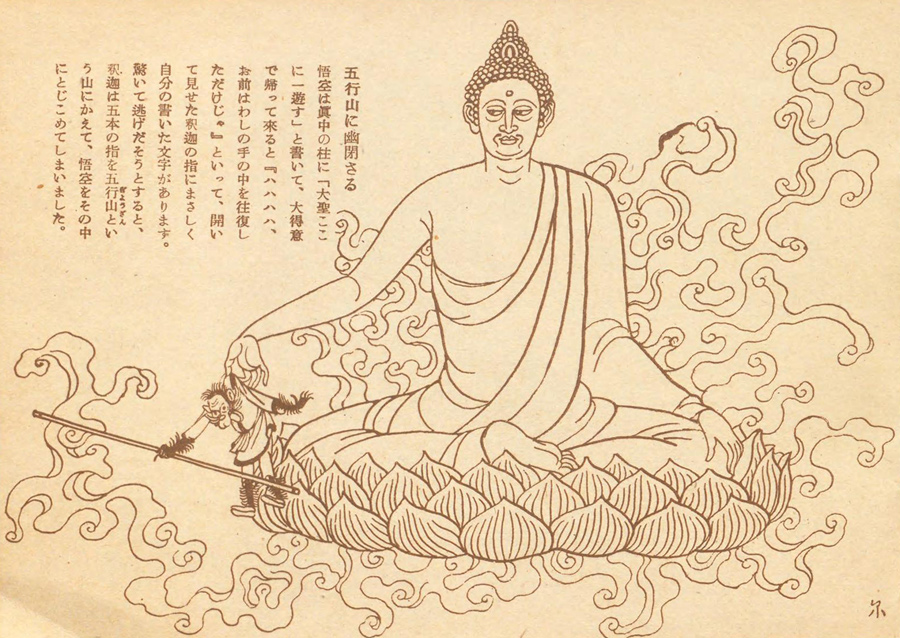 五行山に幽閉さる
悟空は眞中の柱に「大聖ここ
に一遊す」と書いて、大得意
で帰って來ると『ハハハハ、
お前はわしの手の中を往復し
ただけじゃ』といって、開い
て見せた釈迦の指にまさしく
自分の書いた文字があります。
驚いて逃げだそうとすると、
釈迦は五本の指を五行山とい
う山にかえて、悟空をその中
にとじこめてしまいました。